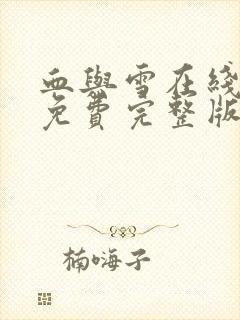 血與雪在綫
免費完整版
楠嗨子